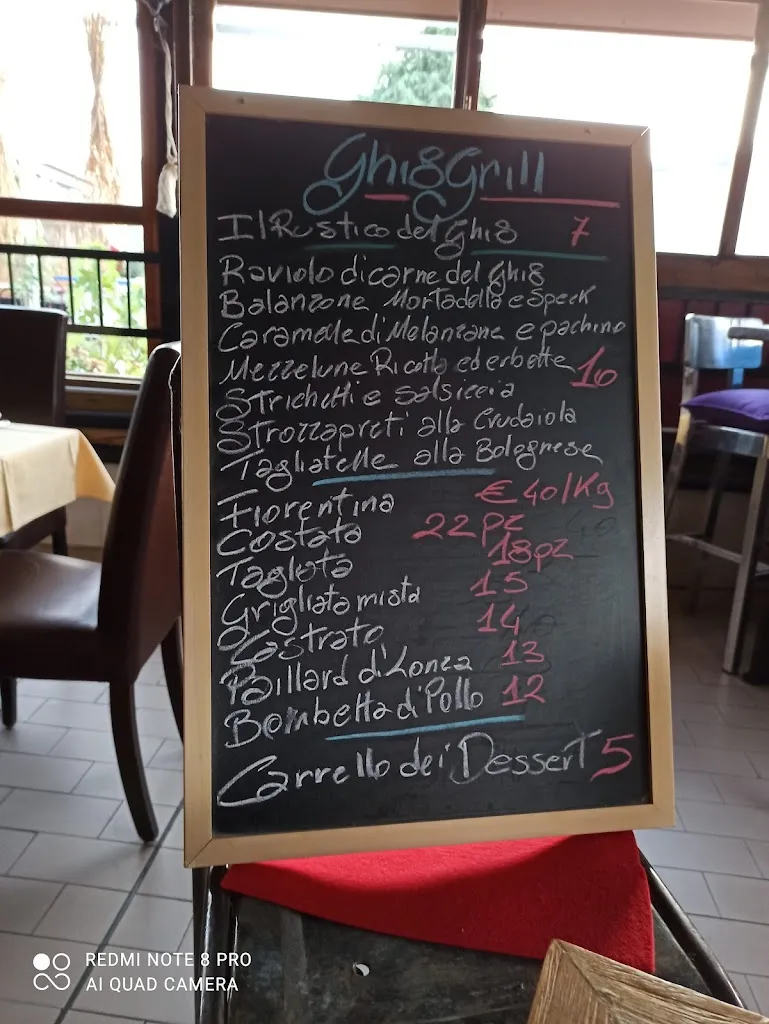 Ghi8Grill
Il Rustico del Ghi8 7
Raviolo di carne del Ghi8
Balanzone Mortadella e Speck
Caramelle di Melanzane e pachino
Mezzelune Ricotta ed erbette 10
Strichetti e salsiccia
Strozzapreti alla Crudaiola
Tagliatelle alla Bolognese
Fiorentina € 40/Kg
Costata 22 pz
Tagliata 18 pz
Grigliata mista 15
Castrato 14
Paillard di Lonza 13
Bombetta di Pollo 12
Carrello dei Dessert 5
REDMI NOTE 8 PRO
AI QUAD CAMERA